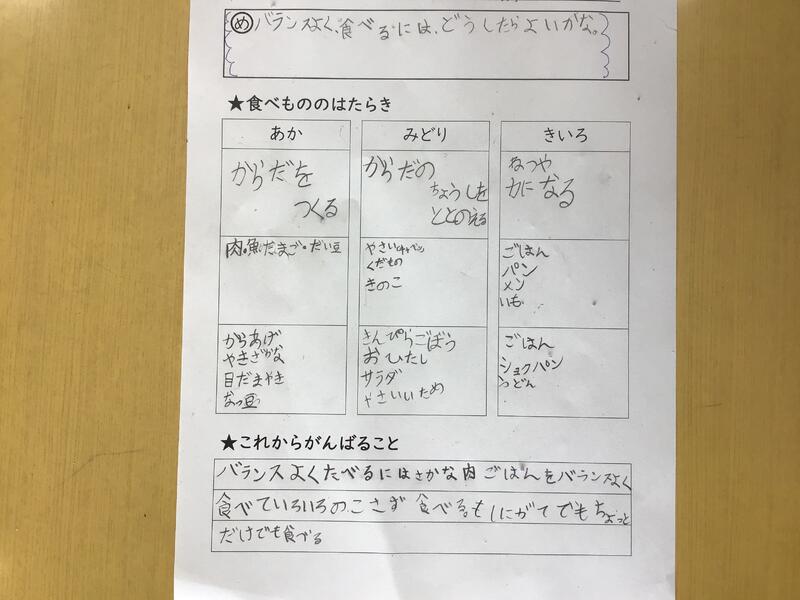 め バランスよく、食べるには、どうしたらよいがな。
★食べもののはたらき
あか
みどり
きいろ
からだを
つくる
からだの
ちょうしを
ととのえる
ねつや
力になる
肉・魚・たまご・だい豆
やさい
くだもの
きのこ
ごはん
パン
メン
いも
からあげ
やきざかな
目だまやき
なっ豆
きんぴらごぼう
おひたし
サラダ
やさいいため
ごはん
ショクパン
うどん
★これからがんばること
バランスよくたべるにはさかな肉ごはんをバランスよく
食べていろいろのこさず食べる。もしにがてでもちょっと
だけでも食べる